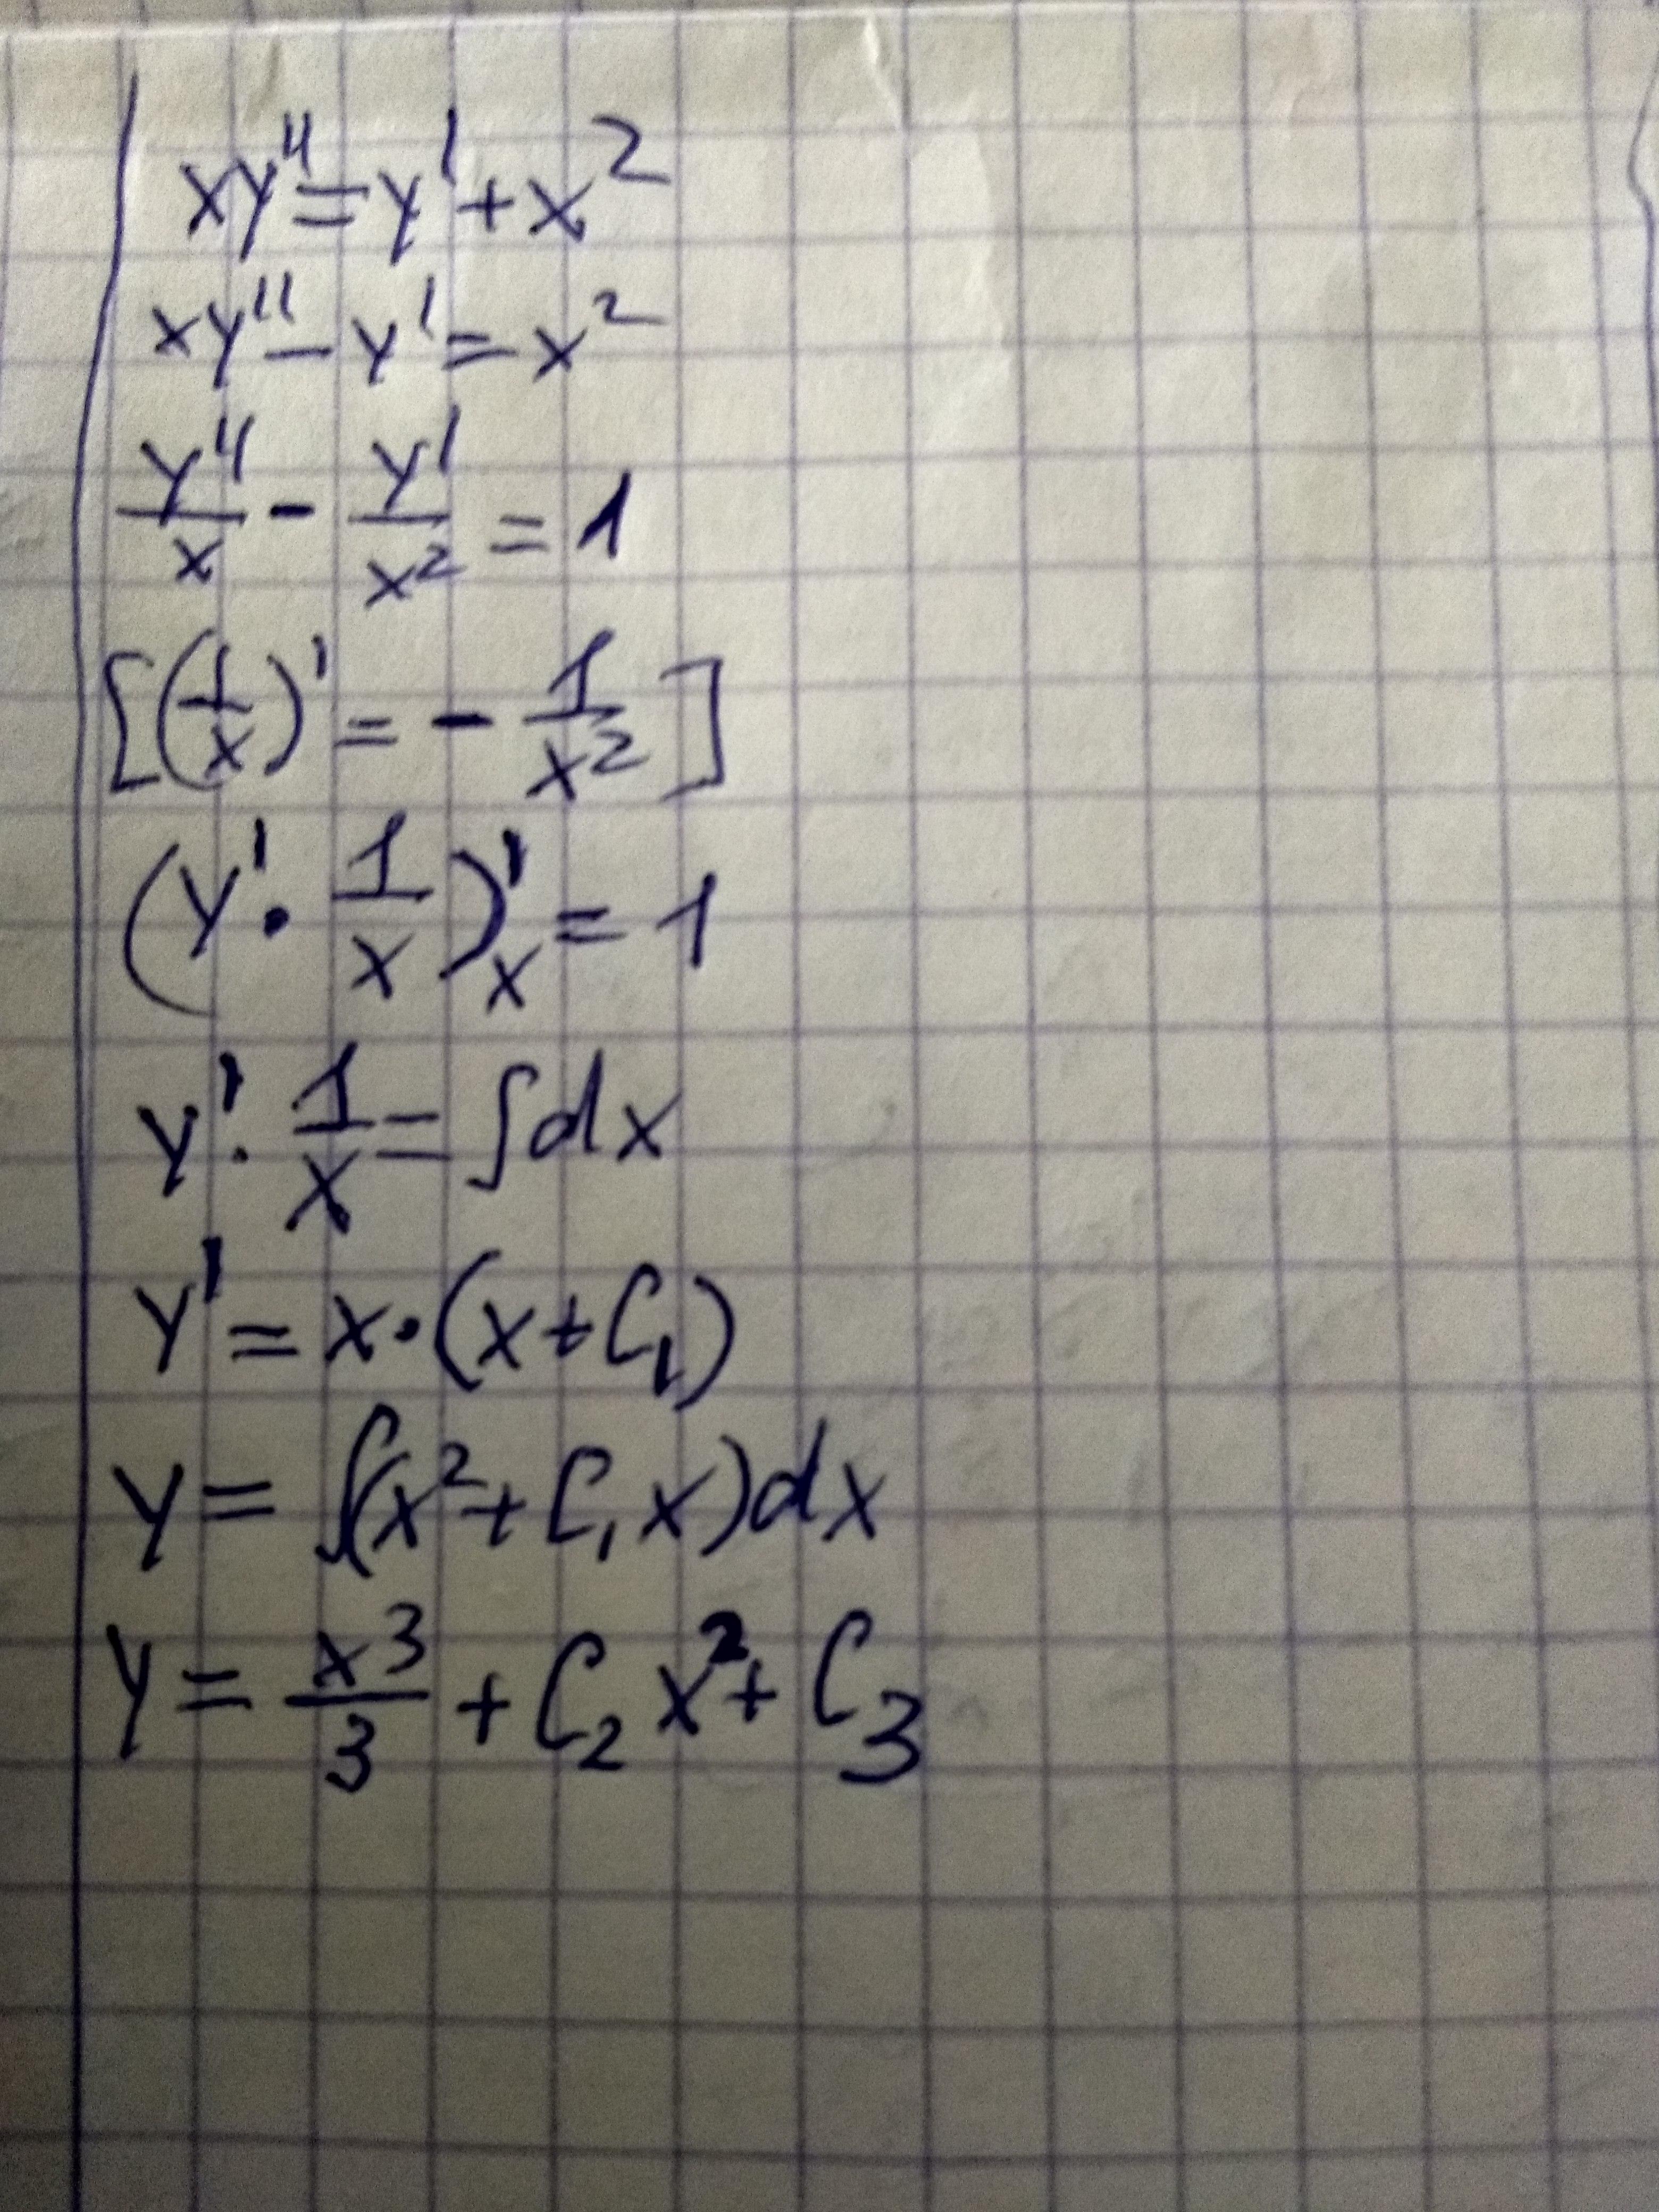 xy'' = y' + x²
xy'' - y' = x²
y''/x - y'/x² = 1
[(1/x)' = - 1/x²]
(y' · 1/x)'ₓ = 1
y' · 1/x = ∫dx
y' = x · (x + C₁)
y = ∫(x² + C₁x)dx
y = x³/3 + C₂x² + C₃